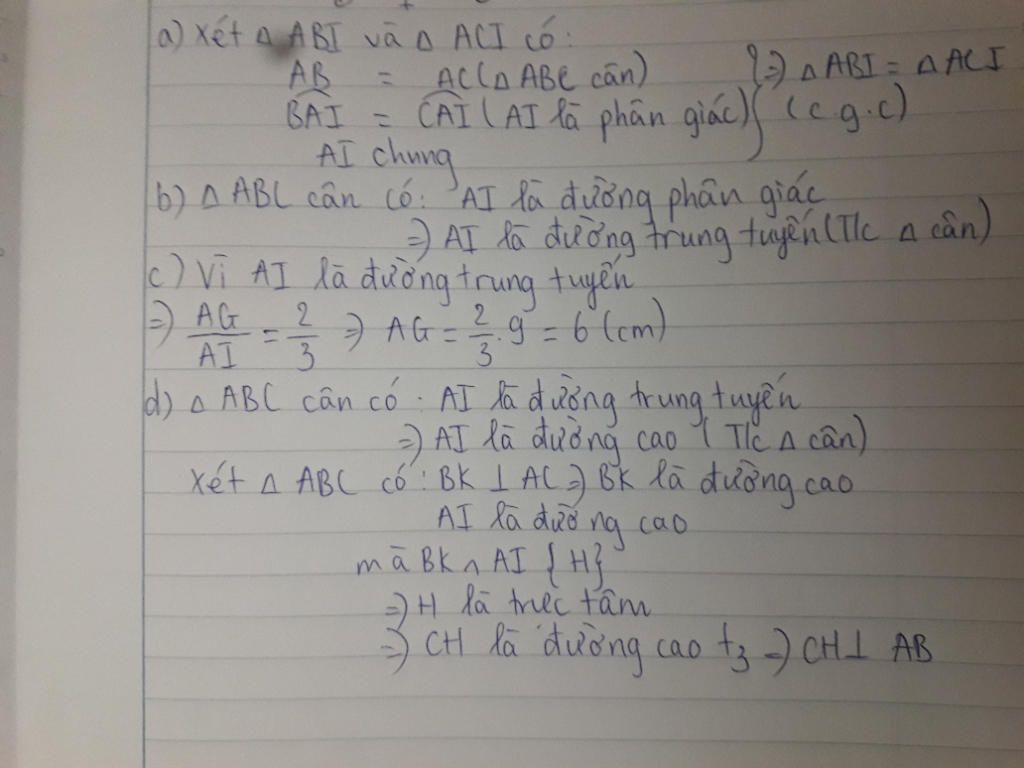 a) Xét △ ABI và △ ACI có:
AB = AC (△ ABC cân) } => △ ABI = △ ACI
BAI = CAI (AI là phân giác) (c.g.c)
AI chung
b) △ ABC cân có: AI là đường phân giác
=> AI là đường trung tuyến (T/c △ cân)
c) Vì AI là đường trung tuyến
=> AG/AI = 2/3 => AG = 2/3 . 9 = 6 (cm)
d) △ ABC cân có: AI là đường trung tuyến
=> AI là đường cao (T/c △ cân)
Xét △ ABC có: BK ⊥ AC => BK là đường cao
AI là đường cao
mà BK ∩ AI {H}
=> H là trực tâm
=> CH là đường cao t3 => CH ⊥ AB